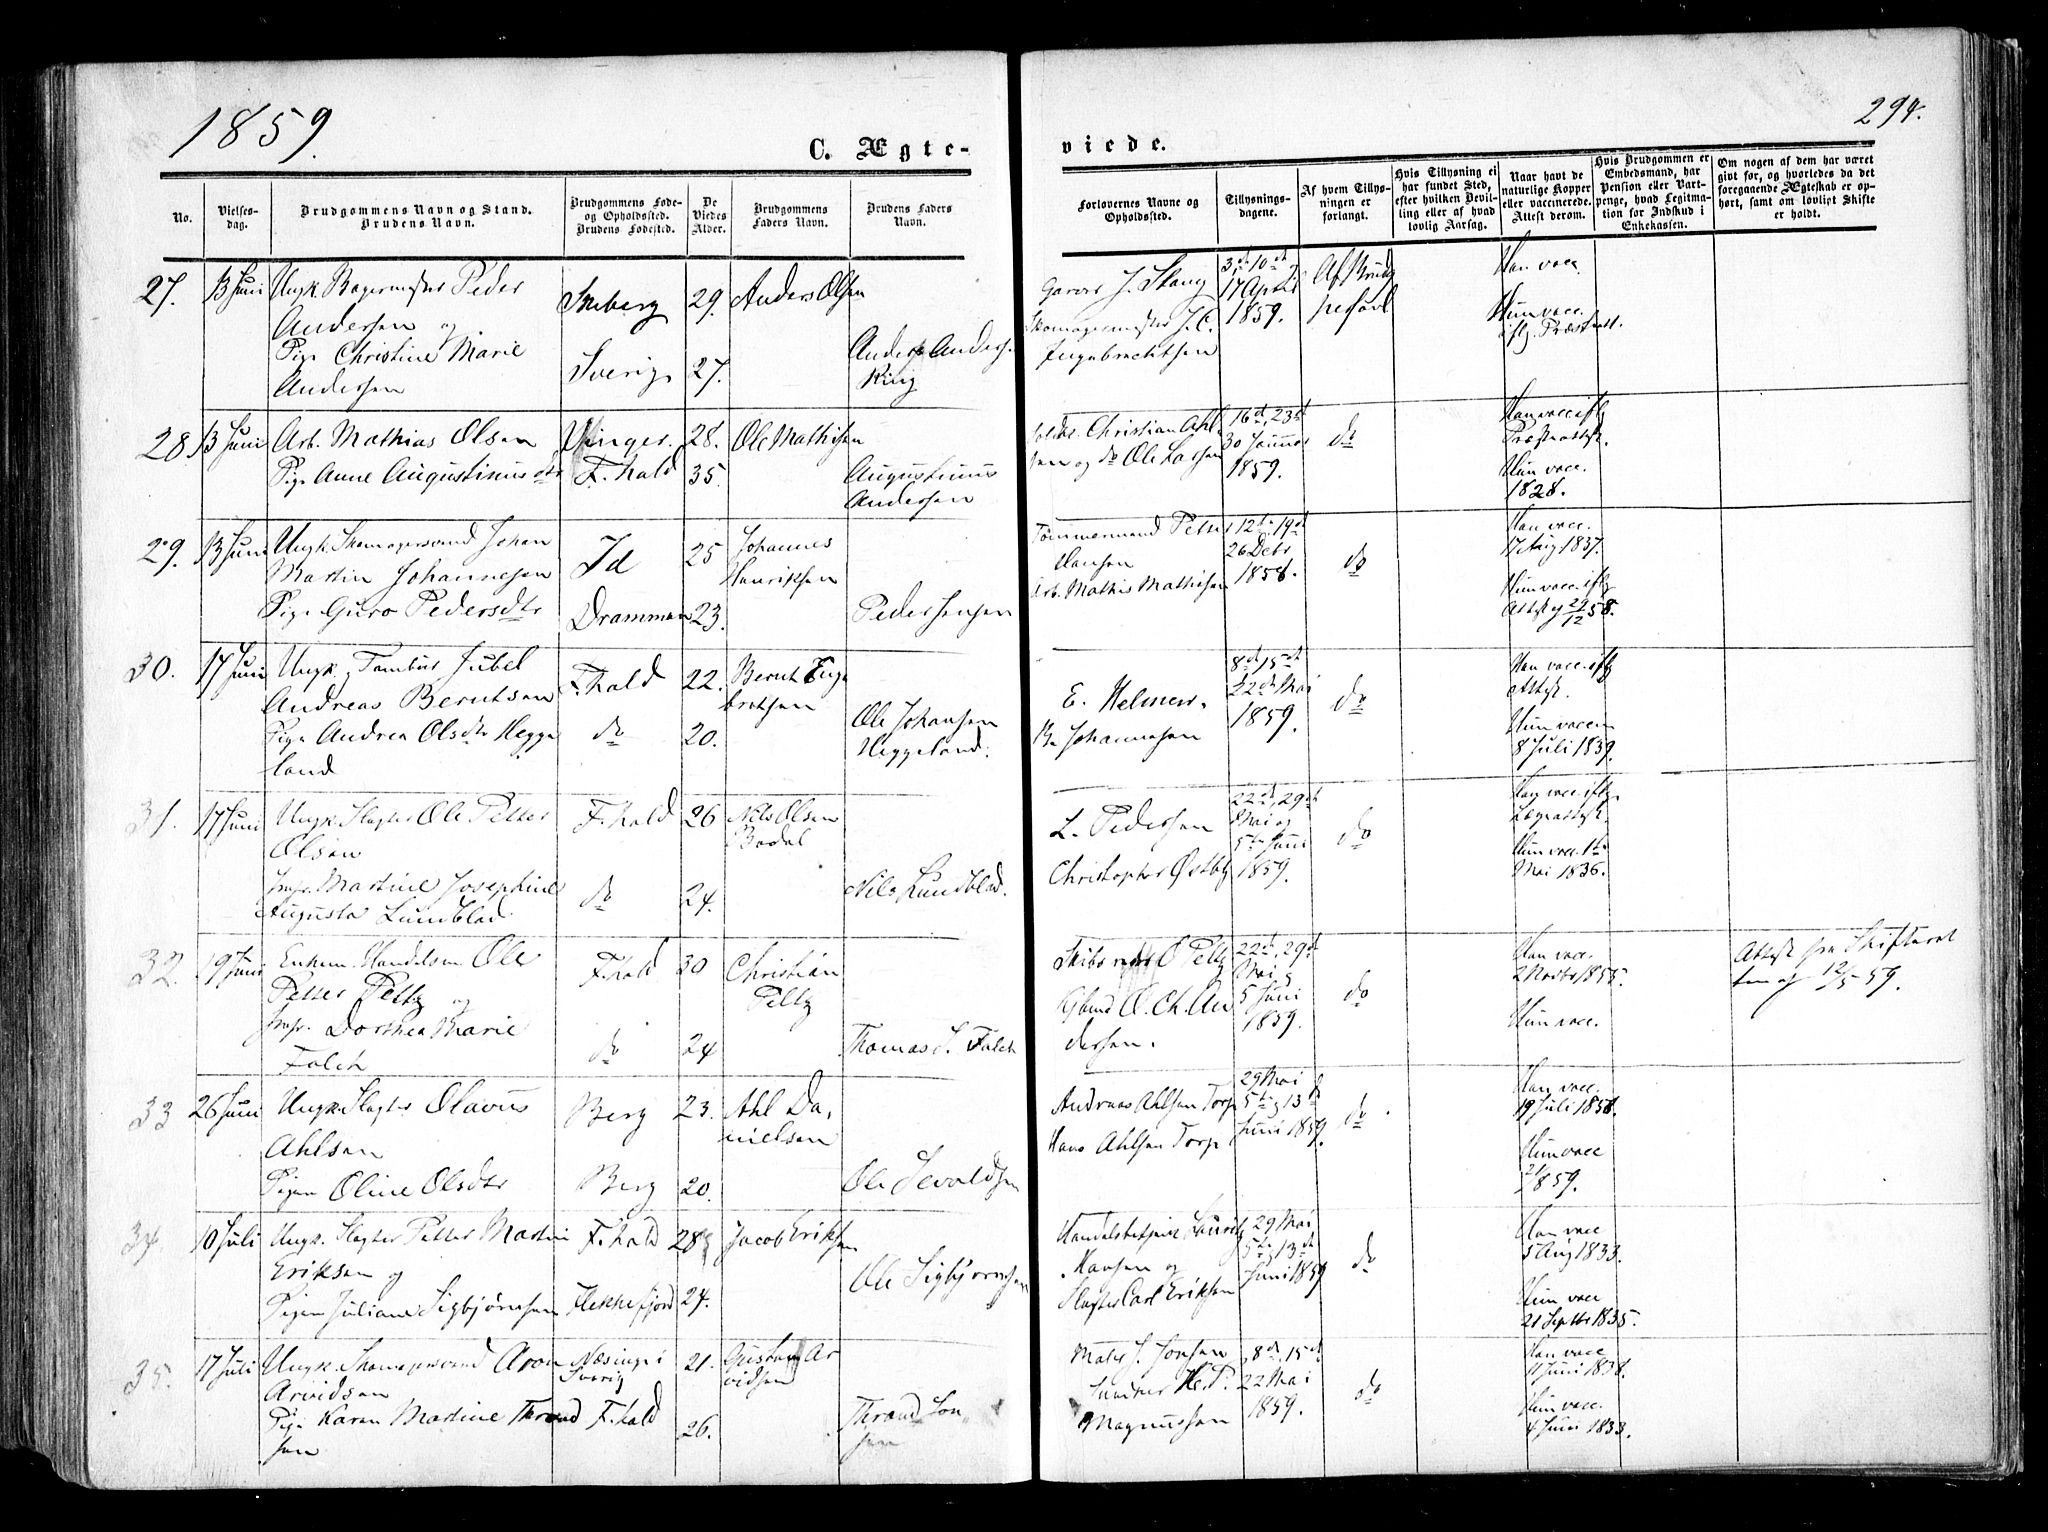 1859.
294.
C. Ægte-
viede.
No.
Vielses-
dag.
Brudgommens Navn og Stand.
Brudens Navn.
Brudgommens Føde-
og Opholdssted.
Brudens Fødested.
De
Viedes
Alder.
Brudgommens
Faders Navn.
Brudens Faders
Navn.
Forlovernes Navne og
Opholdssted.
Tillysnings-
dagene.
Af hvem Tillys-
ningen er
forlangt.
Hvis Tillysning ei
har fundet Sted,
efter hvilken Bevil-
ling eller af hvad
lovlig Aarsag.
Naar havt de
naturlige Kopper
eller vaccinerede.
Attest derom.
Hvis Brudgommen er
Embedsmand, har
Pension eller Vart-
penge, hvad Legitma-
tion for Indskud i
Enkekassen.
Om nogen af dem har været
givt før, og hvorledes da det
foregaaende Ægteskab er op-
hørt, samt om lovligt Skifte
er holdt.
27. 13 Juni Ungk. Bagermester Peder
Andersen og
Pige Christine Marie
Andersen
29. Anders Olsen
Sverig 27.
Anders Andersen
Ring
Garver J. Stang
Skomagermester J. C.
Ingebrechtsen
3d, 10d
17 April
1859.
Han vacc.
Hun vacc.
iflg. Præsteatt.
28. 13 Juni Arb. Mathias Olsen
Pige Anne Augustinusdtr
Vinger. 28. Ole Mathisen
F.hald 35.
Augustinus
Andersen
Christian Ahl
sen og do Ole Larsen
16d, 23d
30 Januar
1859.
do
Han vacc. iflg
Præsteattest.
Hun vacc.
1828.
29. 13 Juni Ungk. Skomagersvend Johan
Martin Johannesen
Pige Guro Pedersdtr
Id 25 Johannes
Henriksen
Drammen 23.
Peder Jensen
Tømmermand Petter
Hansen
Arb. Mathis Mathisen
12te, 19d
26 Debr
1858.
do
Han vacc.
17 Aug 1837.
Hun vacc. iflg
Attest af 29/12 58.
30. 17 Juni Ungk. Tambur Jubel
Andreas Berntsen
Pige Andrea Olsdtr Hegge
land
F.hald 22. Bernt Enge
bretsen
do 20.
Ole Johansen
Heggeland.
E. Helmer.
B. Johannesen
8d, 15d
22d Mai
1859.
do
Han vacc. iflg
Attest.
Hun vaccin
8 Juli 1839.
31. 17 Juni Ungk. Slagter Ole Petter
Olsen
Jmfr. Martine Josephine
Augusta Lundblad
F.hald 26 Nils Olsen
Bodal
do 24.
Nils Lundblad.
L. Pedersen
Christopher Østby
22d, 29d
Mai og
5te Juni
1859.
do
Han vacc. iflg.
Lægeattest.
Hun vacc. 1te
Mai 1836.
32. 19 Juni Enkem. Handelsm. Ole
Petter Peltz og
Jmfr. Dorthea Marie
Falch
F.hald 30 Christian
Peltz
do 24
Thomas S. Falch
Skibsreder O Peltz
O. Ch. An
dersen.
22d, 29d
Mai og
5 Juni
1859.
do
Han vacc.
2 Novbr 1855.
Hun vacc.
Attest fra Skifteret
ten af 12/5 59.
33 26 Juni Ungk. Slagter Olavus
Ahlsen
Pigen Oline Olsdtr
Berg 23. Ahl Da,
nielsen
Berg 20.
Ole Sevaldsen
Andreas Ahlsen Torp
Hans Ahlsen Torp
29 Mai
5te, 13d
Juni 1859.
do
Han vacc.
19 Juli 1858.
Hun vacc
1859.
34. 10 Juli Ungk. Slagter Petter Martin
Eriksen og
Pigen Juliane Sigbjørnsen
F.hald 28 Jacob Eriksen
Flekkefjord 24.
Ole Sigbjørnsen
Handelsbetjent Lauritz
Hansen og
Slagter Carl Eriksen
29 Mai
5te, 13d
Juni 1859
do
Han vacc
5 Aug 1833.
Hun vacc
21 Septbr 1835.
35. 17 Juli Ungk. Skomagersvend Aron
Arvidsen
Pige Karen Martine Thrond
sen
Næsinge i
Sverig
21. Gustav Ar
vidsen
F.hald 26.
Thrond Jon
sen
Maler J. Jonsen
H. P.
Magnussen
8d, 15d
22 Mai
1859.
do
Han vacc
11 Juni 1838.
Hun vacc.
4 Juni 1833.